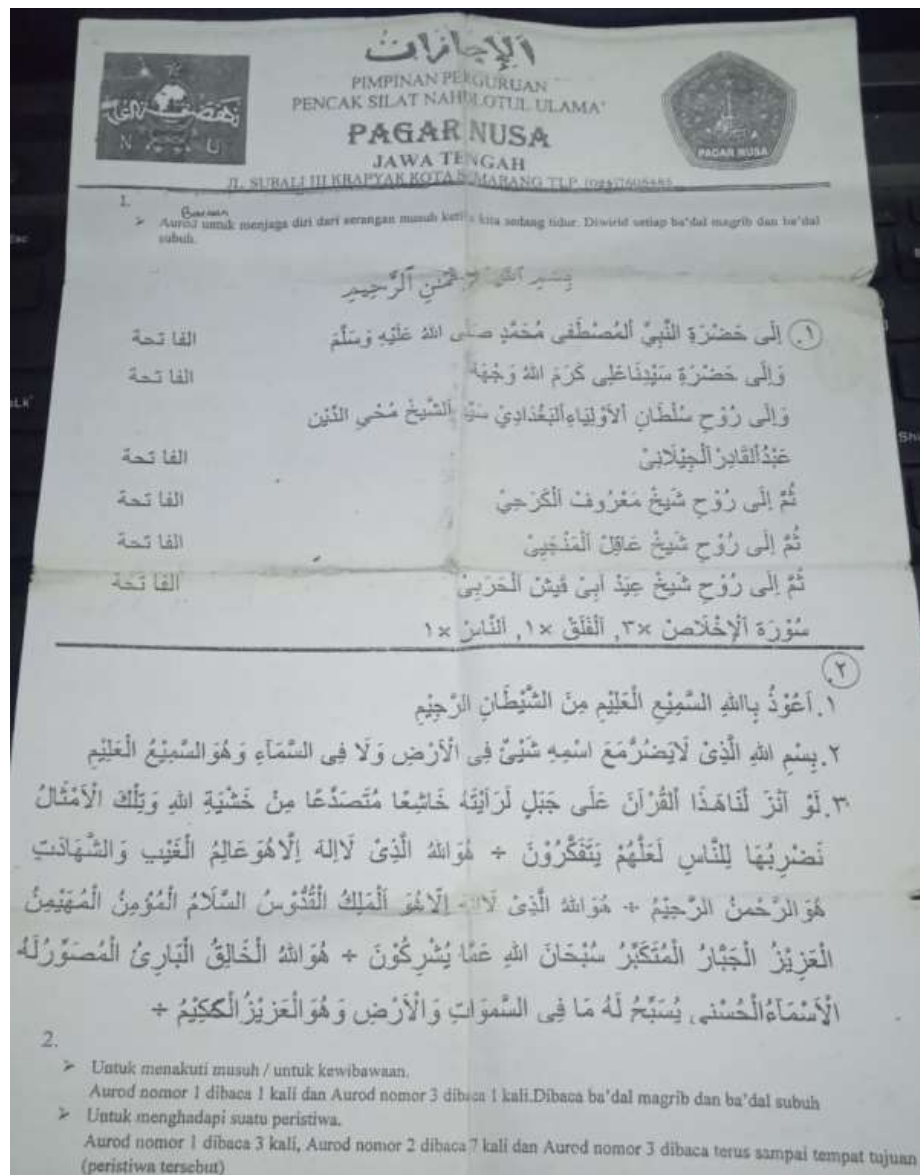 الإجازات
PIMPINAN PERGURUAN
PENCAK SILAT NAHDLOTUL ULAMA'
PAGAR NUSA
JAWA TENGAH
JL. SUBALI III KRAPYAK KOTA SEMARANG TLP.
N U
PAGAR NUSA
1.
Bacaan
➢ Aurod untuk menjaga diri dari serangan musuh ketika kita sedang tidur. Diwirid setiap ba'dal magrib dan ba'dal
subuh.
بِسْمِ ٱللّٰهِ ٱلرَّحْمٰنِ ٱلرَّحِيمِ
١. إِلَى حَضْرَةِ النَّبِيِّ الْمُصْطَفَى مُحَمَّدٍ صَلَّى اللهُ عَلَيْهِ وَسَلَّمَ الفا تحة
وَإِلَى حَضْرَةِ سَيِّدِنَاعَلِى كَرَمَ اللهُ وَجْهَهُ الفا تحة
وَإِلَى رُوْحِ سُلْطَانِ ٱلاَوْلِيَاءِٱلبَغْدَادِيْ ٱلشَّيْخُ مُحْيِ الدِّيْنِ
عَبْدُٱلقَادِرْ ٱلْجَيْلَانِىْ الفا تحة
ثُمَّ إِلَى رُوْحِ شَيخْ مَعْرُوفْ ٱلْكَرَحِيْ الفا تحة
ثُمَّ إِلَى رُوْحِ شَيخْ عَاقِلْ ٱلْمَنْجَبِىْ الفا تحة
ثُمَّ إِلَى رُوْحِ شَيخْ عِيَدْ اَبِىْ قَيسْ ٱلْحَرَبِىْ الفا تحة
سُوْرَة ٱلْإِخْلَاصْ ×٣, ٱلْفَلَقْ ×١, ٱلنَّاسْ ×١
٢.
١. اَعُوْذُ بِاللهِ السَّمِيْعِ الْعَلِيْمِ مِنَ الشَّيْطَانِ الرَّجِيْمِ
٢. بِسْمِ اللهِ الَّذِىْ لَايَضُرُّمَعَ اسْمِهِ شَيْئٌ فِى الْاَرْضِ وَلَا فِى السَّمَآءِ وَهُوَالسَّمِيْعُ الْعَلِيْمِ
٣. لَوْ اَنْزَ لْنَاهَذَا ٱلقُرْآنَ عَلَى جَبَلٍ لَرَاَيْتَهُ خَاشِعًا مُتَصَدِّعًا مِنْ خَشْيَةِ اللهِ وَتِلْكَ الْاَمْثَالُ
نَضْرِبُهَا لِلنَّاسِ لَعَلَّهُمْ يَتَفَكَّرُوْنَ ÷ هُوَاللهُ الَّذِىْ لَااِلهَ اِلَّاهُوَعَالِمُ الْغَيْبِ وَالشَّهَادَتِ
هُوَالرَّحْمنُ الرَّحِيْمُ ÷ هُوَاللهُ الَّذِىْ لَااِلهَ اِلَّاهُوَ ٱلْمَلِكُ الْقُدُّوْسُ السَّلَامُ الْمُؤْمِنُ الْمُهَيْمِنُ
الْعَزِيْزُ الْجَبَّارُ الْمُتَكَبِّرُ سُبْحَانَ اللهِ عَمَّا يُشْرِكُوْنَ ÷ هُوَاللهُ الْخَالِقُ الْبَارِئُ الْمُصَوِّرُلَهُ
الْاَسْمَآءُالْحُسْنى يُسَبِّحُ لَهُ مَا فِى السَّموَاتِ وَالْاَرْضِ وَهُوَالْعَزِيْزُالْحَكِيْمُ ÷
2.
➢ Untuk menakuti musuh / untuk kewibawaan.
Aurod nomor 1 dibaca 1 kali dan Aurod nomor 3 dibaca 1 kali.Dibaca ba'dal magrib dan ba'dal subuh
➢ Untuk menghadapi suatu peristiwa.
Aurod nomor 1 dibaca 3 kali, Aurod nomor 2 dibaca 7 kali dan Aurod nomor 3 dibaca terus sampai tempat tujuan
(peristiwa tersebut)